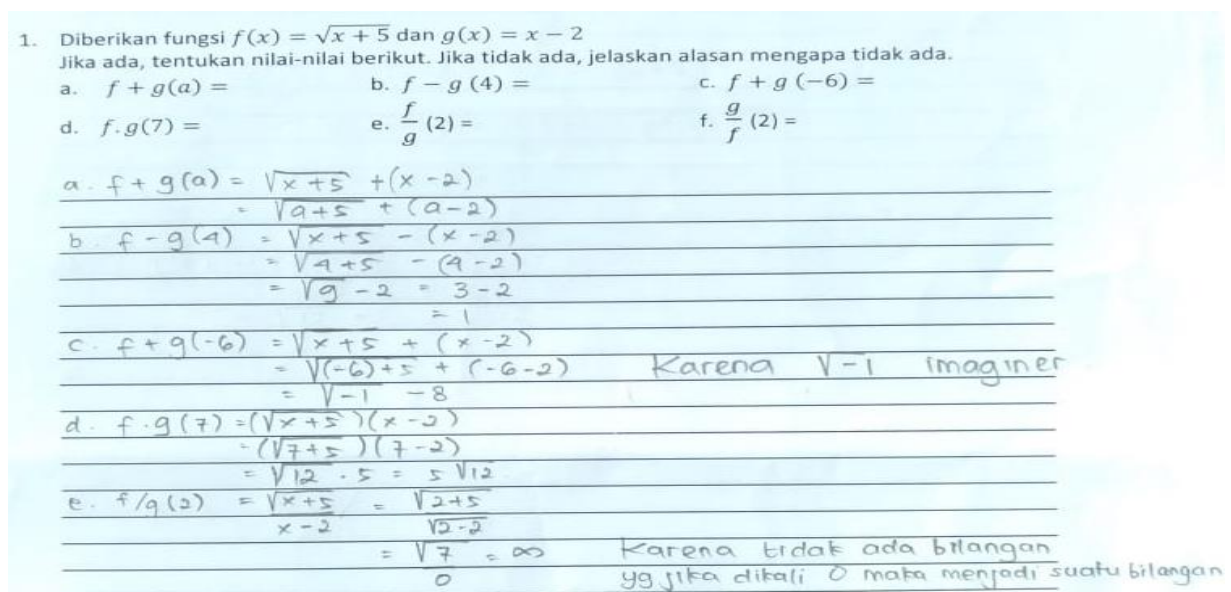 1. Diberikan fungsi f(x) = √x + 5 dan g(x) = x − 2
Jika ada, tentukan nilai-nilai berikut. Jika tidak ada, jelaskan alasan mengapa tidak ada.
a. f + g(a) = b. f − g (4) = c. f + g (−6) =
d. f.g(7) = e. f/g (2) = f. g/f (2) =
a. f + g(a) = √x+5 + (x -2)
= √a+5 + (a-2)
b. f - g(4) = √x+5 - (x -2)
= √4+5 - (4-2)
= √9 - 2 = 3 - 2
= 1
c. f + g(-6) = √x+5 + (x -2)
= √(-6)+5 + (-6-2) Karena √-1 imaginer
= √-1 - 8
d. f . g(7) = (√x+5)(x-2)
= (√7+5)(7-2)
= √12 . 5 = 5 √12
e. f/g(2) = √x+5 / x-2 = √2+5 / √2-2
= √7 / 0 = ∞ Karena tidak ada bilangan
yg jika dikali 0 maka menjadi suatu bilangan